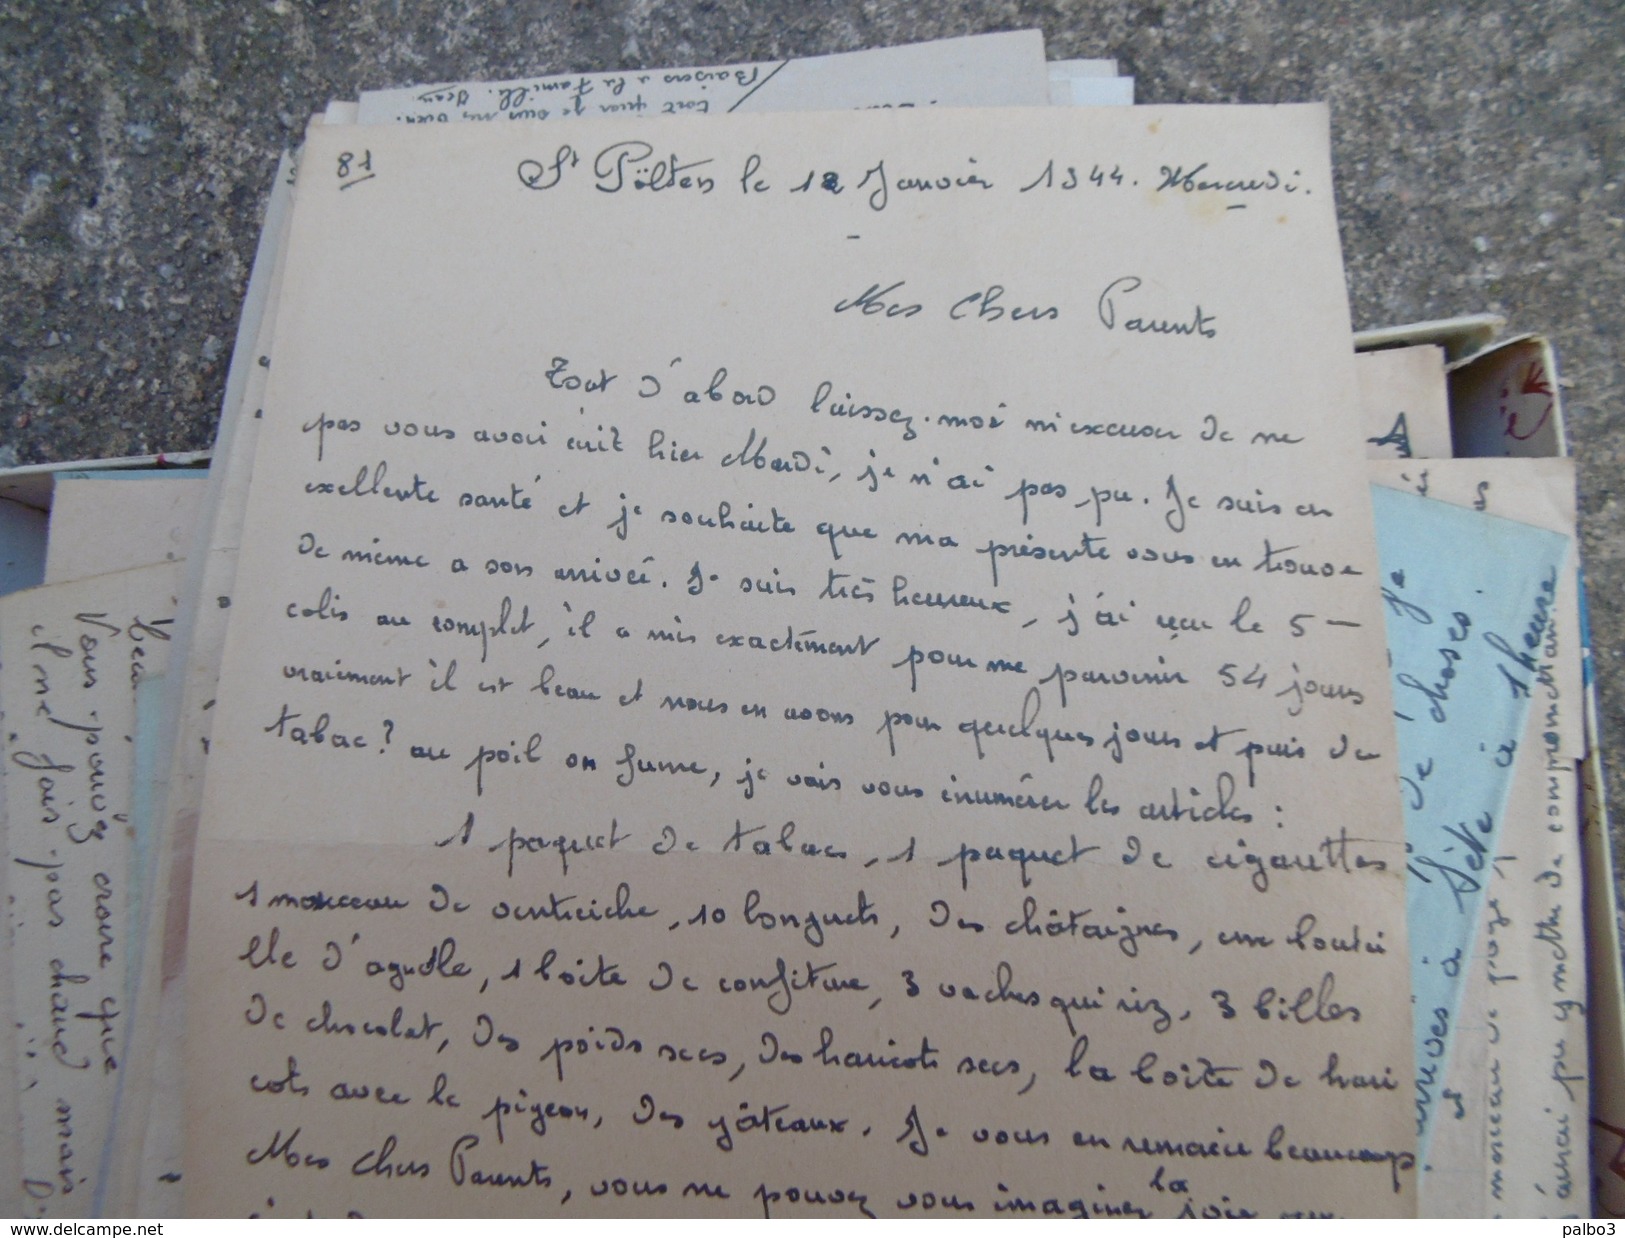 87
St Pölten le 12 Janvier 1944. Mercredi.
Mes Chers Parents
Tout d'abord laissez-moi m'excuser de ne
pas vous avoir écrit hier Mardi, je n'ai pas pu. Je suis en
exellente santé et je souhaite que ma présente vous en trouve
de même a son arrivée. Je suis très heureux, j'ai reçu le 5 —
colis au complet, il a mis exactément pour me parvenir 54 jours
vraiement il est beau et nous en avons pour quelques jours et puis de
tabac? au poil on fume, je vais vous énumérer les articles :
1 paquet de tabac, 1 paquet de cigarettes
1 morceau de ventreiche, 10 longuets, des châtaignes, une boutei
lle d'agnole, 1 boite de confiture, 3 vaches qui riz, 3 billes
de chocolat, des poids secs, des haricots secs, la boîte de hari
cots avec le pigeon, des gâteaux. Je vous en remercie beaucoup.
Mes Chers Parents, vous ne pouvez vous imaginer la joie
Baisers a la Famille. Jean
Vous pouvez croire que
il ne fais pas chaud mais
Je
de choses.
Sète a 1 heure
arrivés à
et
morceau de
pu y mettre de compromettant
delcampe.net
palbo3